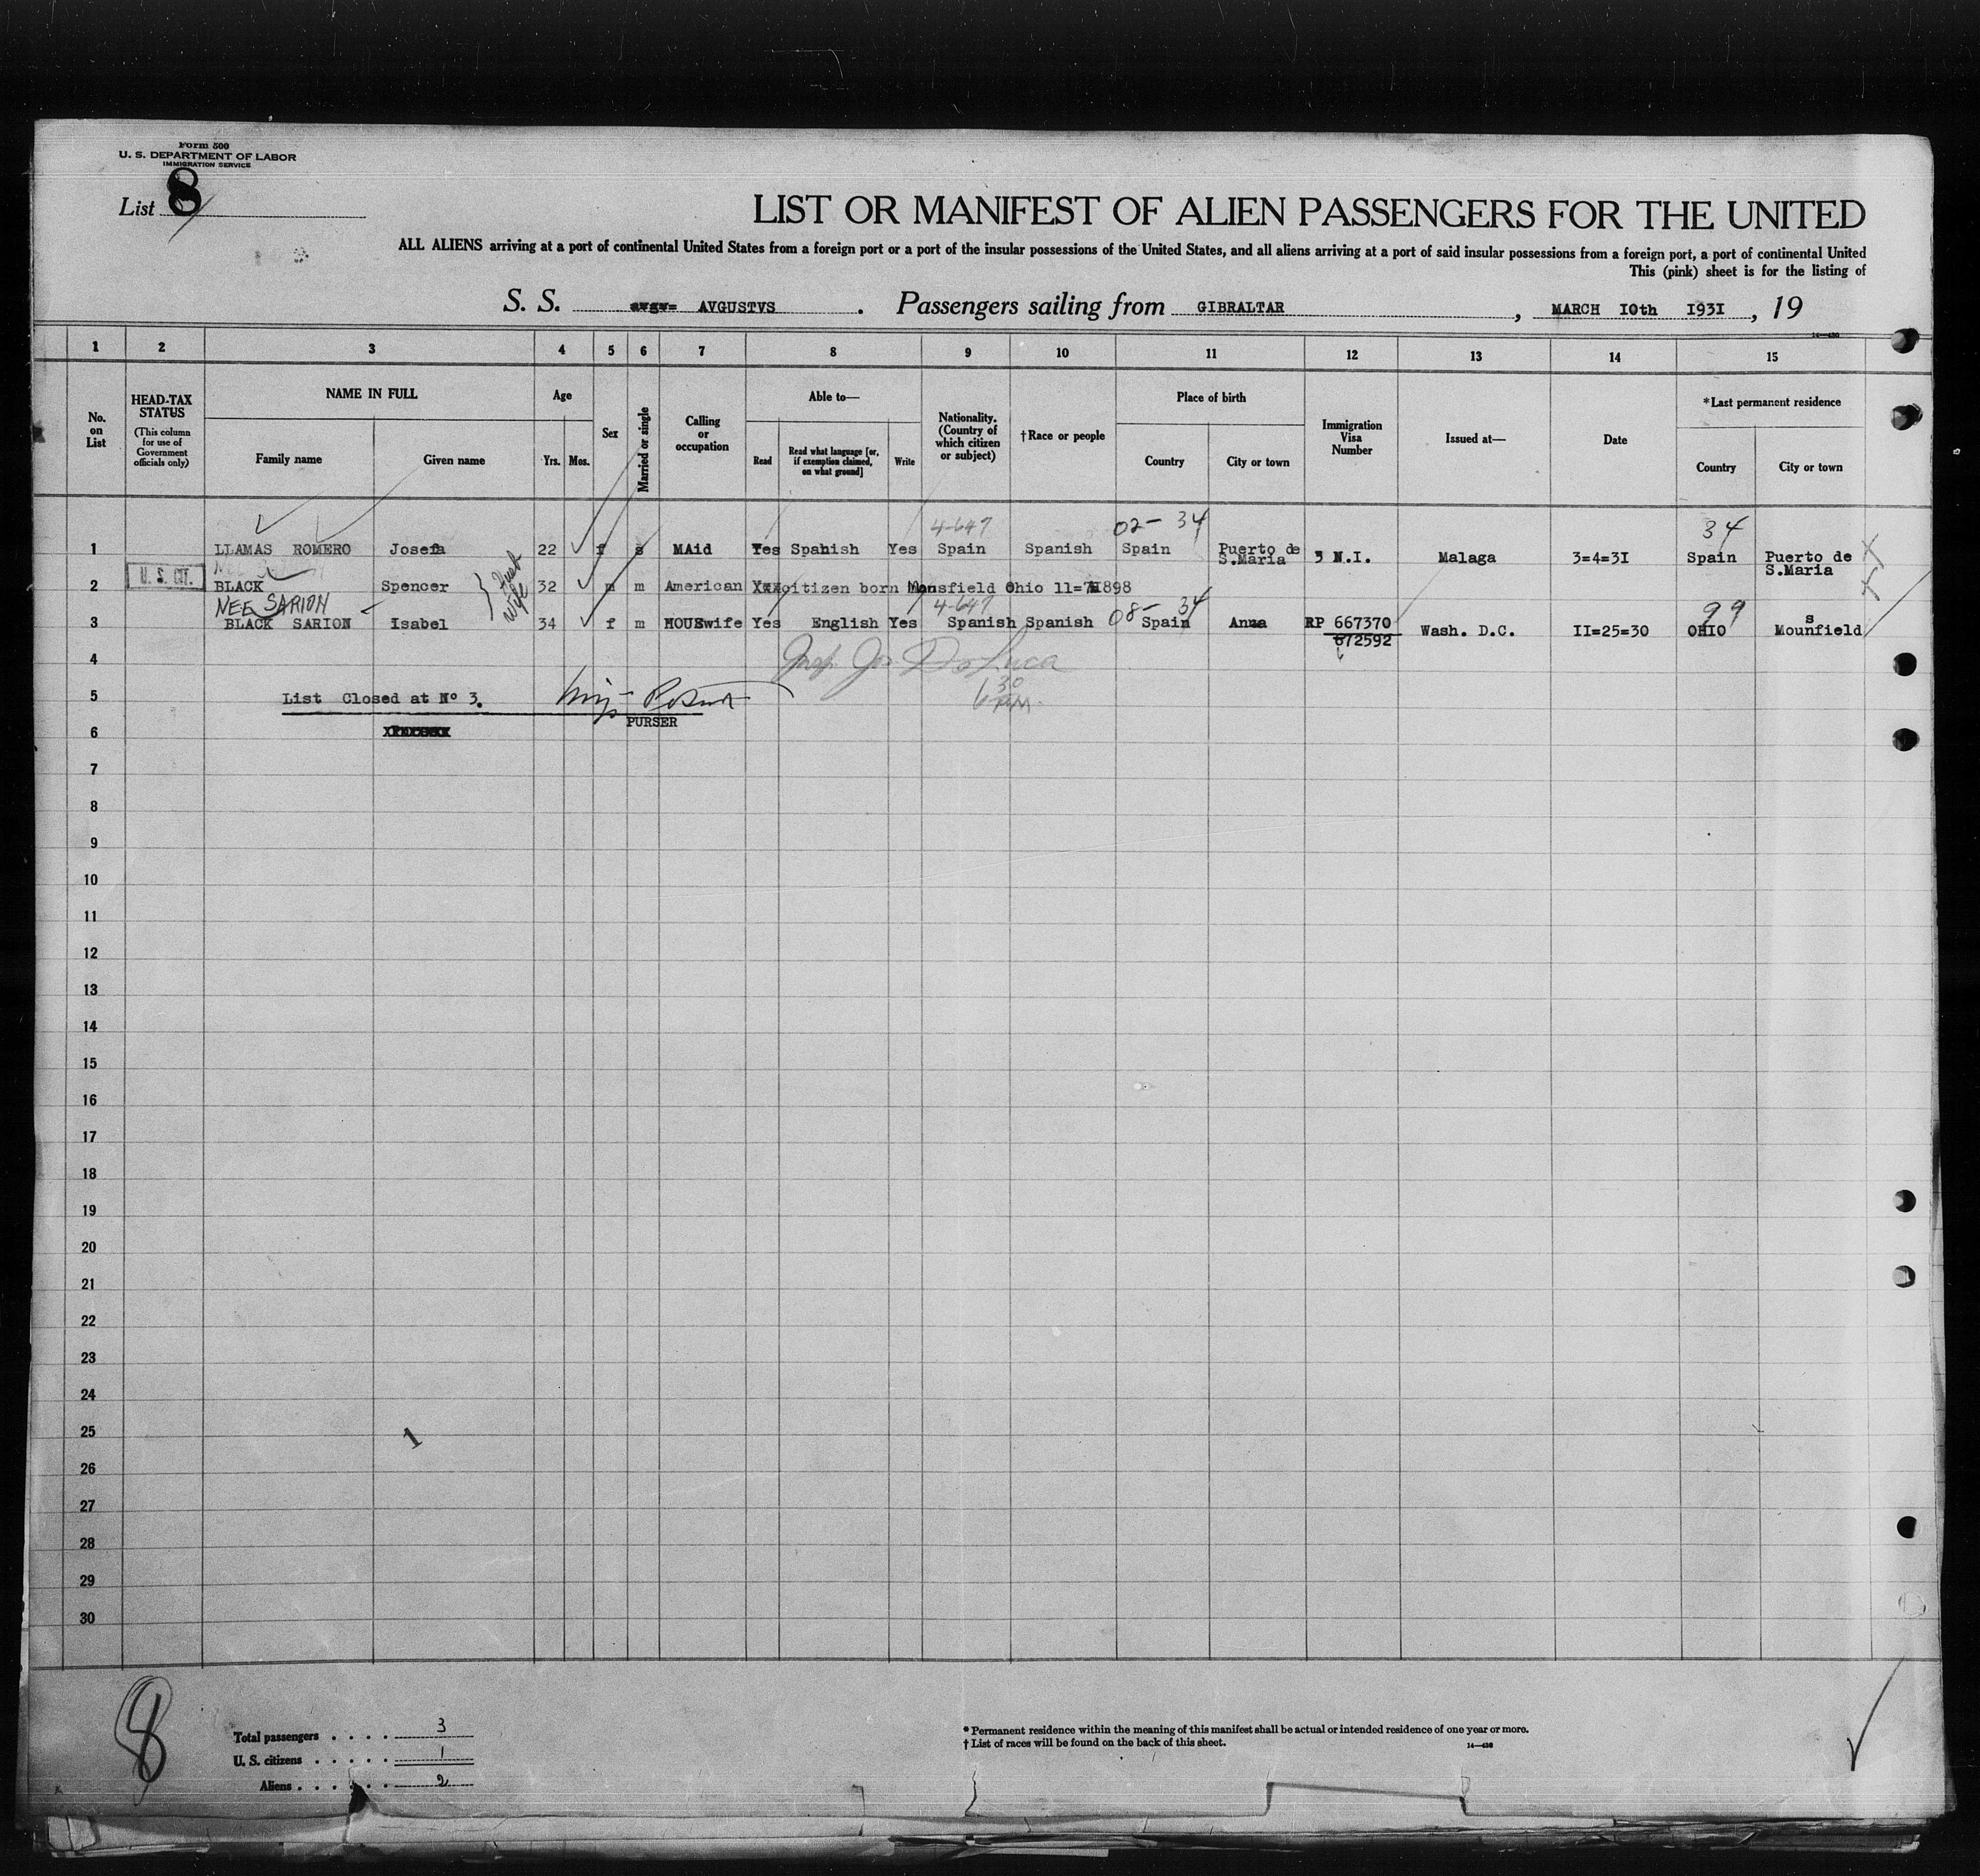 Form 500
U. S. DEPARTMENT OF LABOR
IMMIGRATION SERVICE
List 8
LIST OR MANIFEST OF ALIEN PASSENGERS FOR THE UNITED
ALL ALIENS arriving at a port of continental United States from a foreign port or a port of the insular possessions of the United States, and all aliens arriving at a port of said insular possessions from a foreign port, a port of continental United
This (pink) sheet is for the listing of
S. S. AVGUSTVS . Passengers sailing from GIBRALTAR , MARCH 10th 1931 , 19
14—430
1 2 3 4 5 6 7 8 9 10 11 12 13 14 15
No. on List
HEAD-TAX STATUS (This column for use of Government officials only)
NAME IN FULL
Family name Given name
Age
Yrs. Mos.
Sex
Married or single
Calling or occupation
Able to—
Read Read what language [or, if exemption claimed, on what ground] Write
Nationality. (Country of which citizen or subject)
†Race or people
Place of birth
Country City or town
Immigration Visa Number
Issued at—
Date
*Last permanent residence
Country City or town
4-647 02- 34 34
1 LLAMAS ROMERO Josefa 22 f s MAid Yes Spanish Yes Spain Spanish Spain Puerto de S.Maria 3 N.I. Malaga 3=4=3I Spain Puerto de S.Maria
U. S. CIT.
2 BLACK Spencer 32 m m American citizen born Mansfield Ohio 11=7 1898
Husb Wife
NEE SARION 4-647 08- 34 99
3 BLACK SARION Isabel 34 f m HOUSwife Yes English Yes Spanish Spanish Spain Anna RP 667370 Wash. D.C. II=25=30 OHIO Mounsfield
672592
4
5 List Closed at No 3.
6 30 PM
PURSER
6
7
8
9
10
11
12
13
14
15
16
17
18
19
20
21
22
23
24
25
1
26
27
28
29
30
8
Total passengers . . . . 3
U. S. citizens . . . . . 1
Aliens . . . . . . 2
* Permanent residence within the meaning of this manifest shall be actual or intended residence of one year or more.
† List of races will be found on the back of this sheet.
14—430